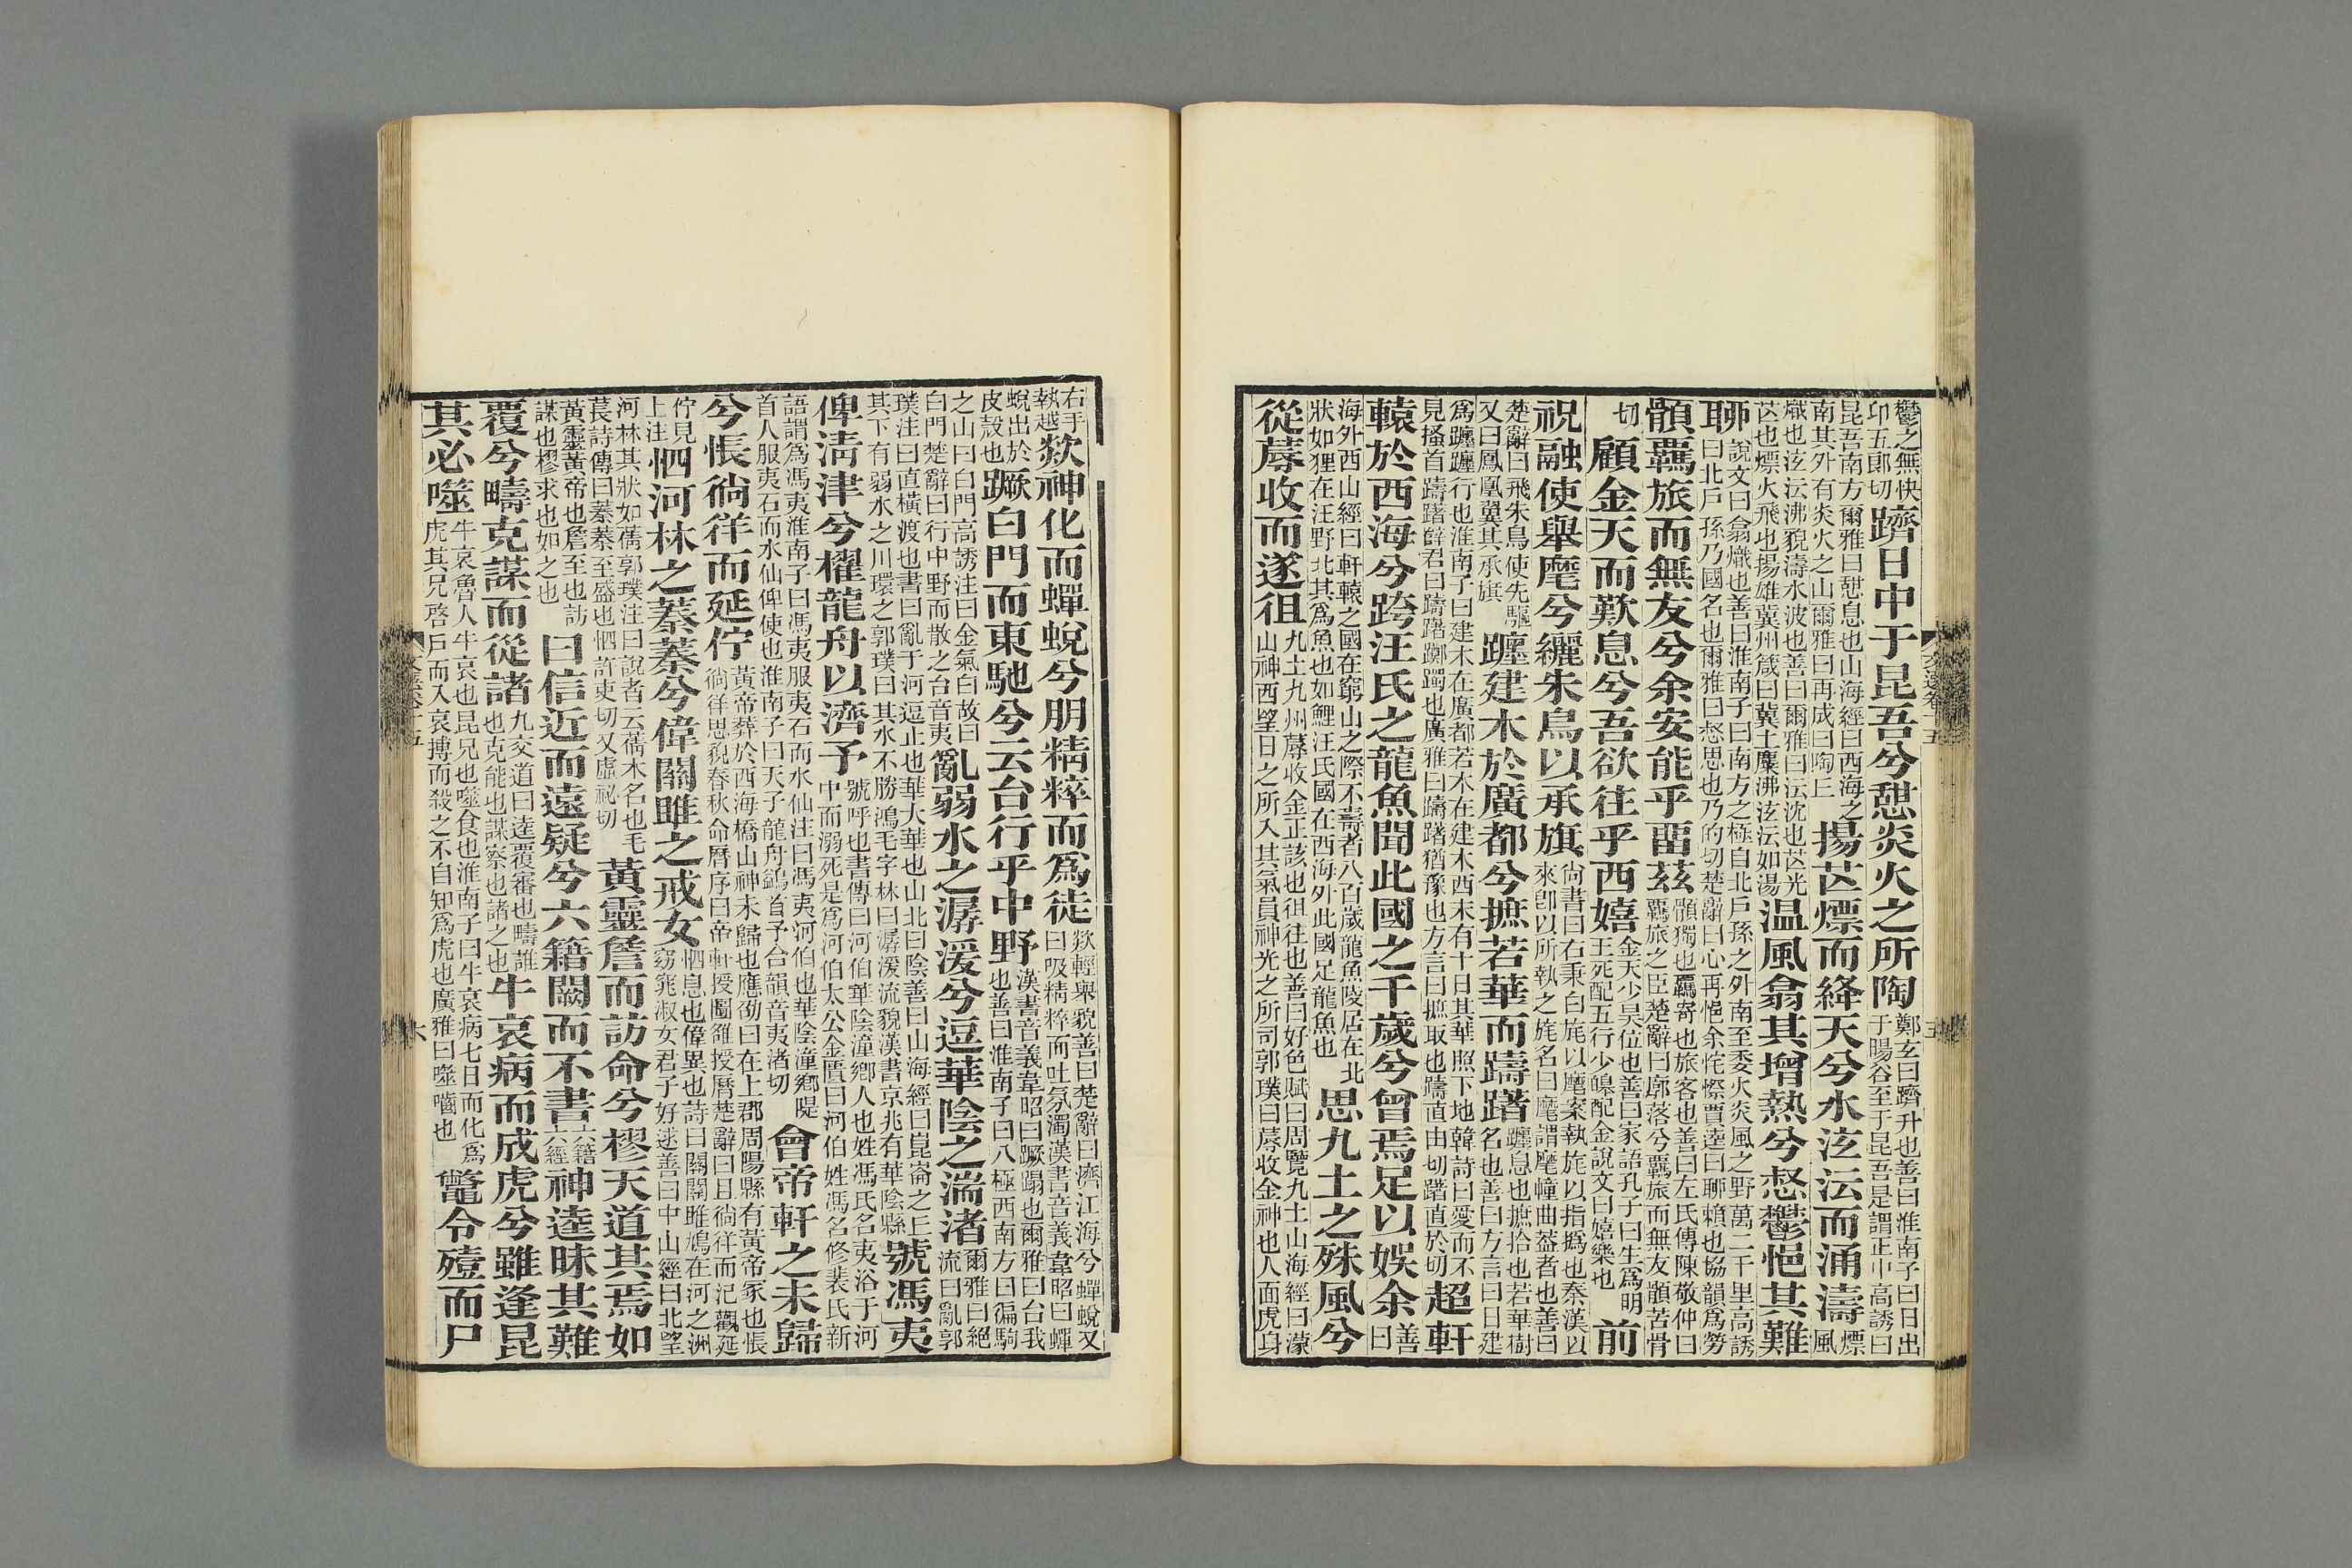 鬱之無快卬五郎切躋日中于昆吾兮憩炎火之所陶鄭玄曰躋升也善曰淮南子曰日出于暘谷至于昆吾是謂正中高誘曰
昆吾南方爾雅曰憩息也山海經曰西海之南其外有炎火之山爾雅曰再成曰陶丘揚芒熛而絳天兮水泫沄而涌濤熛風
熾也泫沄沸貌濤水波也善曰爾雅曰沄沈也芒光芒也熛火飛也揚雄冀州箴曰冀土麋沸泫沄如湯温風翕其增熱兮惄鬱悒其難
聊說文曰翕熾也善曰淮南子曰南方之極自北戶孫之外南至委火炎風之野萬二千里高誘曰北戶孫乃國名也爾雅曰惄思也乃的切楚辭曰心再悒余侘傺賈逵曰聊賴也協韻爲勞
顝羈旅而無友兮余安能乎畱茲顝獨也羈寄也旅客也善曰左氏傳陳敬仲曰羈旅之臣楚辭曰廓落兮羈旅而無友顝苦骨
切顧金天而歎息兮吾欲往乎西嬉金天少昊位也善曰家語孔子曰生爲明王死配五行少皞配金說文曰嬉樂也前
祝融使舉麾兮纚朱鳥以承旗尚書曰右秉白旄以麾案執旄以指撝也秦漢以來卽以所執之旄名曰麾謂麾幢曲葢者也善曰
楚辭曰飛朱鳥使先驅又曰鳳凰翼其承旗躔建木於廣都兮摭若華而躊躇躔息也摭拾也若華樹名也善曰方言曰日運
爲躔躔行也淮南子曰建木在廣都若木在建木西末有十日其華照下地韓詩曰愛而不見搔首躊躇薛君曰躊躇躑躅也廣雅曰躊躇猶豫也方言曰摭取也躊直由切躇直於切超軒
轅於西海兮跨汪氏之龍魚聞此國之千歲兮曾焉足以娛余善曰
海外西山經曰軒轅之國在窮山之際不壽者八百歲龍魚陵居在北狀如狸在汪野北其爲魚也如鯉汪氏國在西海外此國足龍魚也思九土之殊風兮
從蓐收而遂徂九土九州蓐收金正該也徂往也善曰好色賦曰周覽九土山海經曰濛山神西望日之所入其氣員神光之所司郭璞曰蓐收金神也人面虎身
右手執越欻神化而蟬蛻兮朋精粹而爲徒欻輕舉貌善曰楚辭曰濟江海兮蟬蛻又曰吸精粹而吐氛濁漢書音義韋昭曰蟬
蛻出於皮殼也蹶白門而東馳兮云台行乎中野漢書音義韋昭曰蹶蹋也爾雅曰台我也善曰淮南子曰八極西南方曰徧駒
之山曰白門高誘注曰金氣白故曰白門楚辭曰行中野而散之台音夷亂弱水之潺湲兮逗華陰之湍渚爾雅曰絕流曰亂郭
璞注曰直橫渡也書曰亂于河逗止也華大華也山北曰陰善曰山海經曰崑崙之丘其下有弱水之川環之郭璞曰其水不勝鴻毛字林曰潺湲流貌漢書京兆有華陰縣號馮夷
俾清津兮櫂龍舟以濟予號呼也書傳曰河伯華陰潼鄉人也姓馮氏名夷浴于河中而溺死是爲河伯太公金匱曰河伯姓馮名修裴氏新
語謂爲馮夷淮南子曰馮夷服夷石而水仙注曰馮夷河伯也華陰潼鄉隄首人服夷石而水仙俾使也淮南子曰天子龍舟鷁首予合韻音夷渚切會帝軒之未歸
兮悵徜徉而延佇黃帝葬於西海橋山神未歸也應劭曰在上郡周陽縣有黃帝冢也悵徜徉思貌春秋命曆序曰帝軒授圖雒授曆楚辭曰且徜徉而汜觀延
佇見上注恓河林之蓁蓁兮偉關雎之戒女恓息也偉異也詩曰關關雎鳩在河之洲窈窕淑女君子好逑善曰中山經曰北望
河林其狀如蒨郭璞注曰說者云蒨木名也毛萇詩傳曰蓁蓁至盛也恓許吏切又虛祕切黃靈詹而訪命兮樛天道其焉如
黃靈黃帝也詹至也訪謀也樛求也如之也曰信近而遠疑兮六籍闕而不書六籍六經神逵昧其難
覆兮疇克謀而從諸九交道曰逵覆審也疇誰也克能也謀察也諸之也牛哀病而成虎兮雖逢昆
其必噬牛哀魯人牛哀也昆兄也噬食也淮南子曰牛哀病七日而化爲虎其兄啓戶而入哀搏而殺之不自知爲虎也廣雅曰噬嚙也鼈令殪而尸